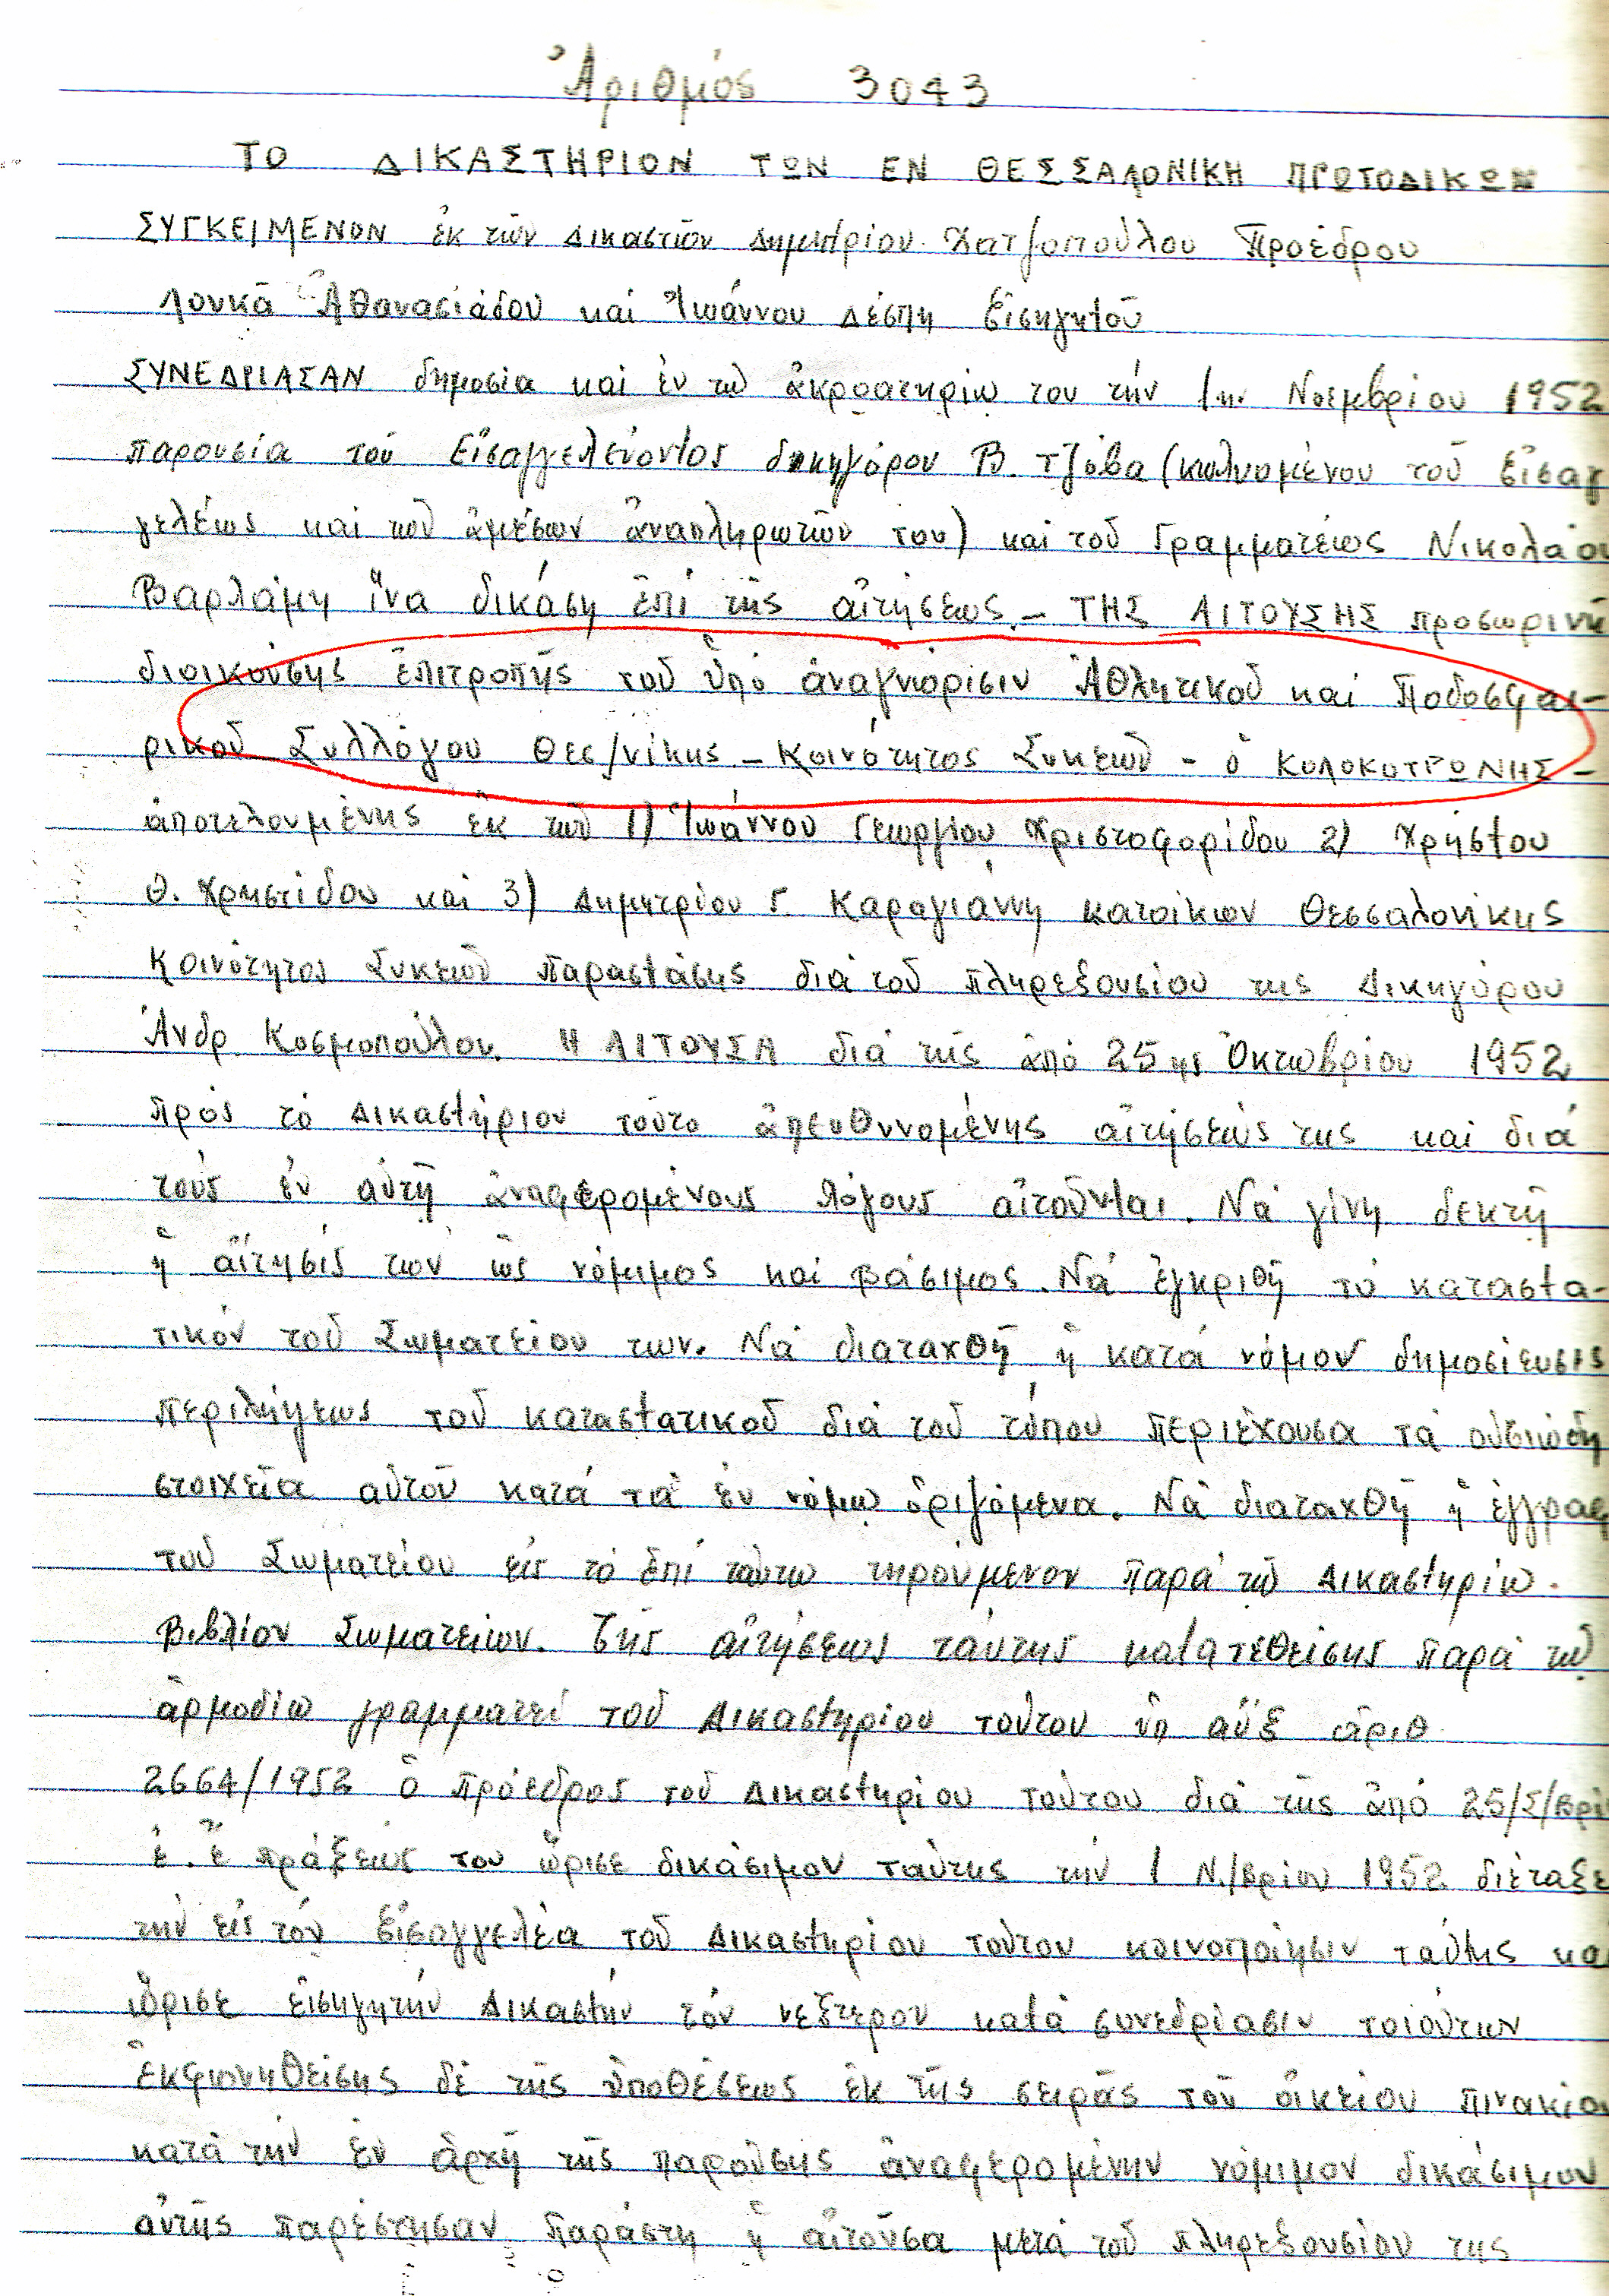 Ἀριθμός 3043
ΤΟ ΔΙΚΑΣΤΗΡΙΟΝ ΤΩΝ ΕΝ ΘΕΣΣΑΛΟΝΙΚΗ ΠΡΩΤΟΔΙΚΩΝ
ΣΥΓΚΕΙΜΕΝΟΝ ἐκ τῶν Δικαστῶν Δημητρίου Χατζοπούλου Προέδρου
Λουκᾶ Ἀθανασιάδου καί Ἰωάννου Δέσπη Εἰσηγητοῦ
ΣΥΝΕΔΡΙΑΣΑΝ δημοσία καί ἐν τῷ ἀκροατηρίῳ του τήν 1ην Νοεμβρίου 1952
παρουσία τοῦ Εἰσαγγελεύοντος δικηγόρου Β. Τζόβα (κωλυομένου τοῦ Εἰσαγ
γελέως καί τῶν ἀμέσων ἀναπληρωτῶν του) καί τοῦ Γραμματέως Νικολάου
Βαρλάμη ἵνα δικάσῃ ἐπί τῆς αἰτήσεως.- ΤΗΣ ΑΙΤΟΥΣΗΣ προσωρινῆς
διοικούσης ἐπιτροπῆς τοῦ ὑπό ἀναγνώρισιν Ἀθλητικοῦ καί Ποδοσφαι-
ρικοῦ Συλλόγου Θεσ/νίκης - Κοινότητος Συκεῶν - ὁ ΚΟΛΟΚΟΤΡΩΝΗΣ -
ἀποτελουμένης ἐκ τῶν 1) Ἰωάννου Γεωργίου Χριστοφορίδου 2) Χρήστου
Θ. Χρηστίδου καί 3) Δημητρίου Γ. Καραγιάννη κατοίκων Θεσσαλονίκης
Κοινότητος Συκεῶν παραστάσης διά τοῦ πληρεξουσίου της Δικηγόρου
Ἀνδρ. Κοσμοπούλου. Η ΑΙΤΟΥΣΑ διά τῆς ἀπό 25ης Ὀκτωβρίου 1952
πρός τό Δικαστήριον τοῦτο ἀπευθυνομένης αἰτήσεώς της καί διά
τούς ἐν αὐτῇ ἀναφερομένους λόγους αἰτοῦνται. Νά γίνη δεκτή
ἡ αἴτησίς των ὡς νόμιμος καί βάσιμος. Νά ἐγκριθῇ τό καταστα-
τικόν τοῦ Σωματείου των. Νά διαταχθῇ ἡ κατά νόμον δημοσίευσις
περιλήψεως τοῦ καταστατικοῦ διά τοῦ τύπου περιέχουσα τά οὐσιώδη
στοιχεῖα αὐτοῦ κατά τά ἐν νόμῳ ὁριζόμενα. Νά διαταχθῇ ἡ ἐγγραφ
τοῦ Σωματείου εἰς τό ἐπί τούτῳ τηρούμενον παρά τῷ Δικαστηρίῳ.
Βιβλίον Σωματείων. Τῆς αἰτήσεως ταύτης κατατεθείσης παρά τῷ
ἁρμοδίῳ γραμματεῖ τοῦ Δικαστηρίου τούτου ὑπ αὔξ ἀριθ
2664/1952 ὁ πρόεδρος τοῦ Δικαστηρίου τούτου διά τῆς ἀπό 25/Σ/βρί
ἐ. ἔ πράξεως του ὥρισε δικάσιμον ταύτης τήν 1 Ν./βρίου 1952 διέταξε
τήν εἰς τόν Εἰσαγγελέα τοῦ Δικαστηρίου τούτου κοινοποίησιν ταύτης καί
ὥρισε εἰσηγητήν Δικαστήν τόν νεώτερον κατά συνεδρίασιν τοιούτων
ἐκφωνηθείσης δέ τῆς ὑποθέσεως ἐκ τῆς σειρᾶς τοῦ οἰκείου πινακίου
κατά τήν ἐν ἀρχῇ τῆς παρούσης ἀναφερομένην νόμιμον δικάσιμον
αὐτῆς παρέστησαν Παρέστη ἡ αἰτοῦσα μετά τοῦ πληρεξουσίου της